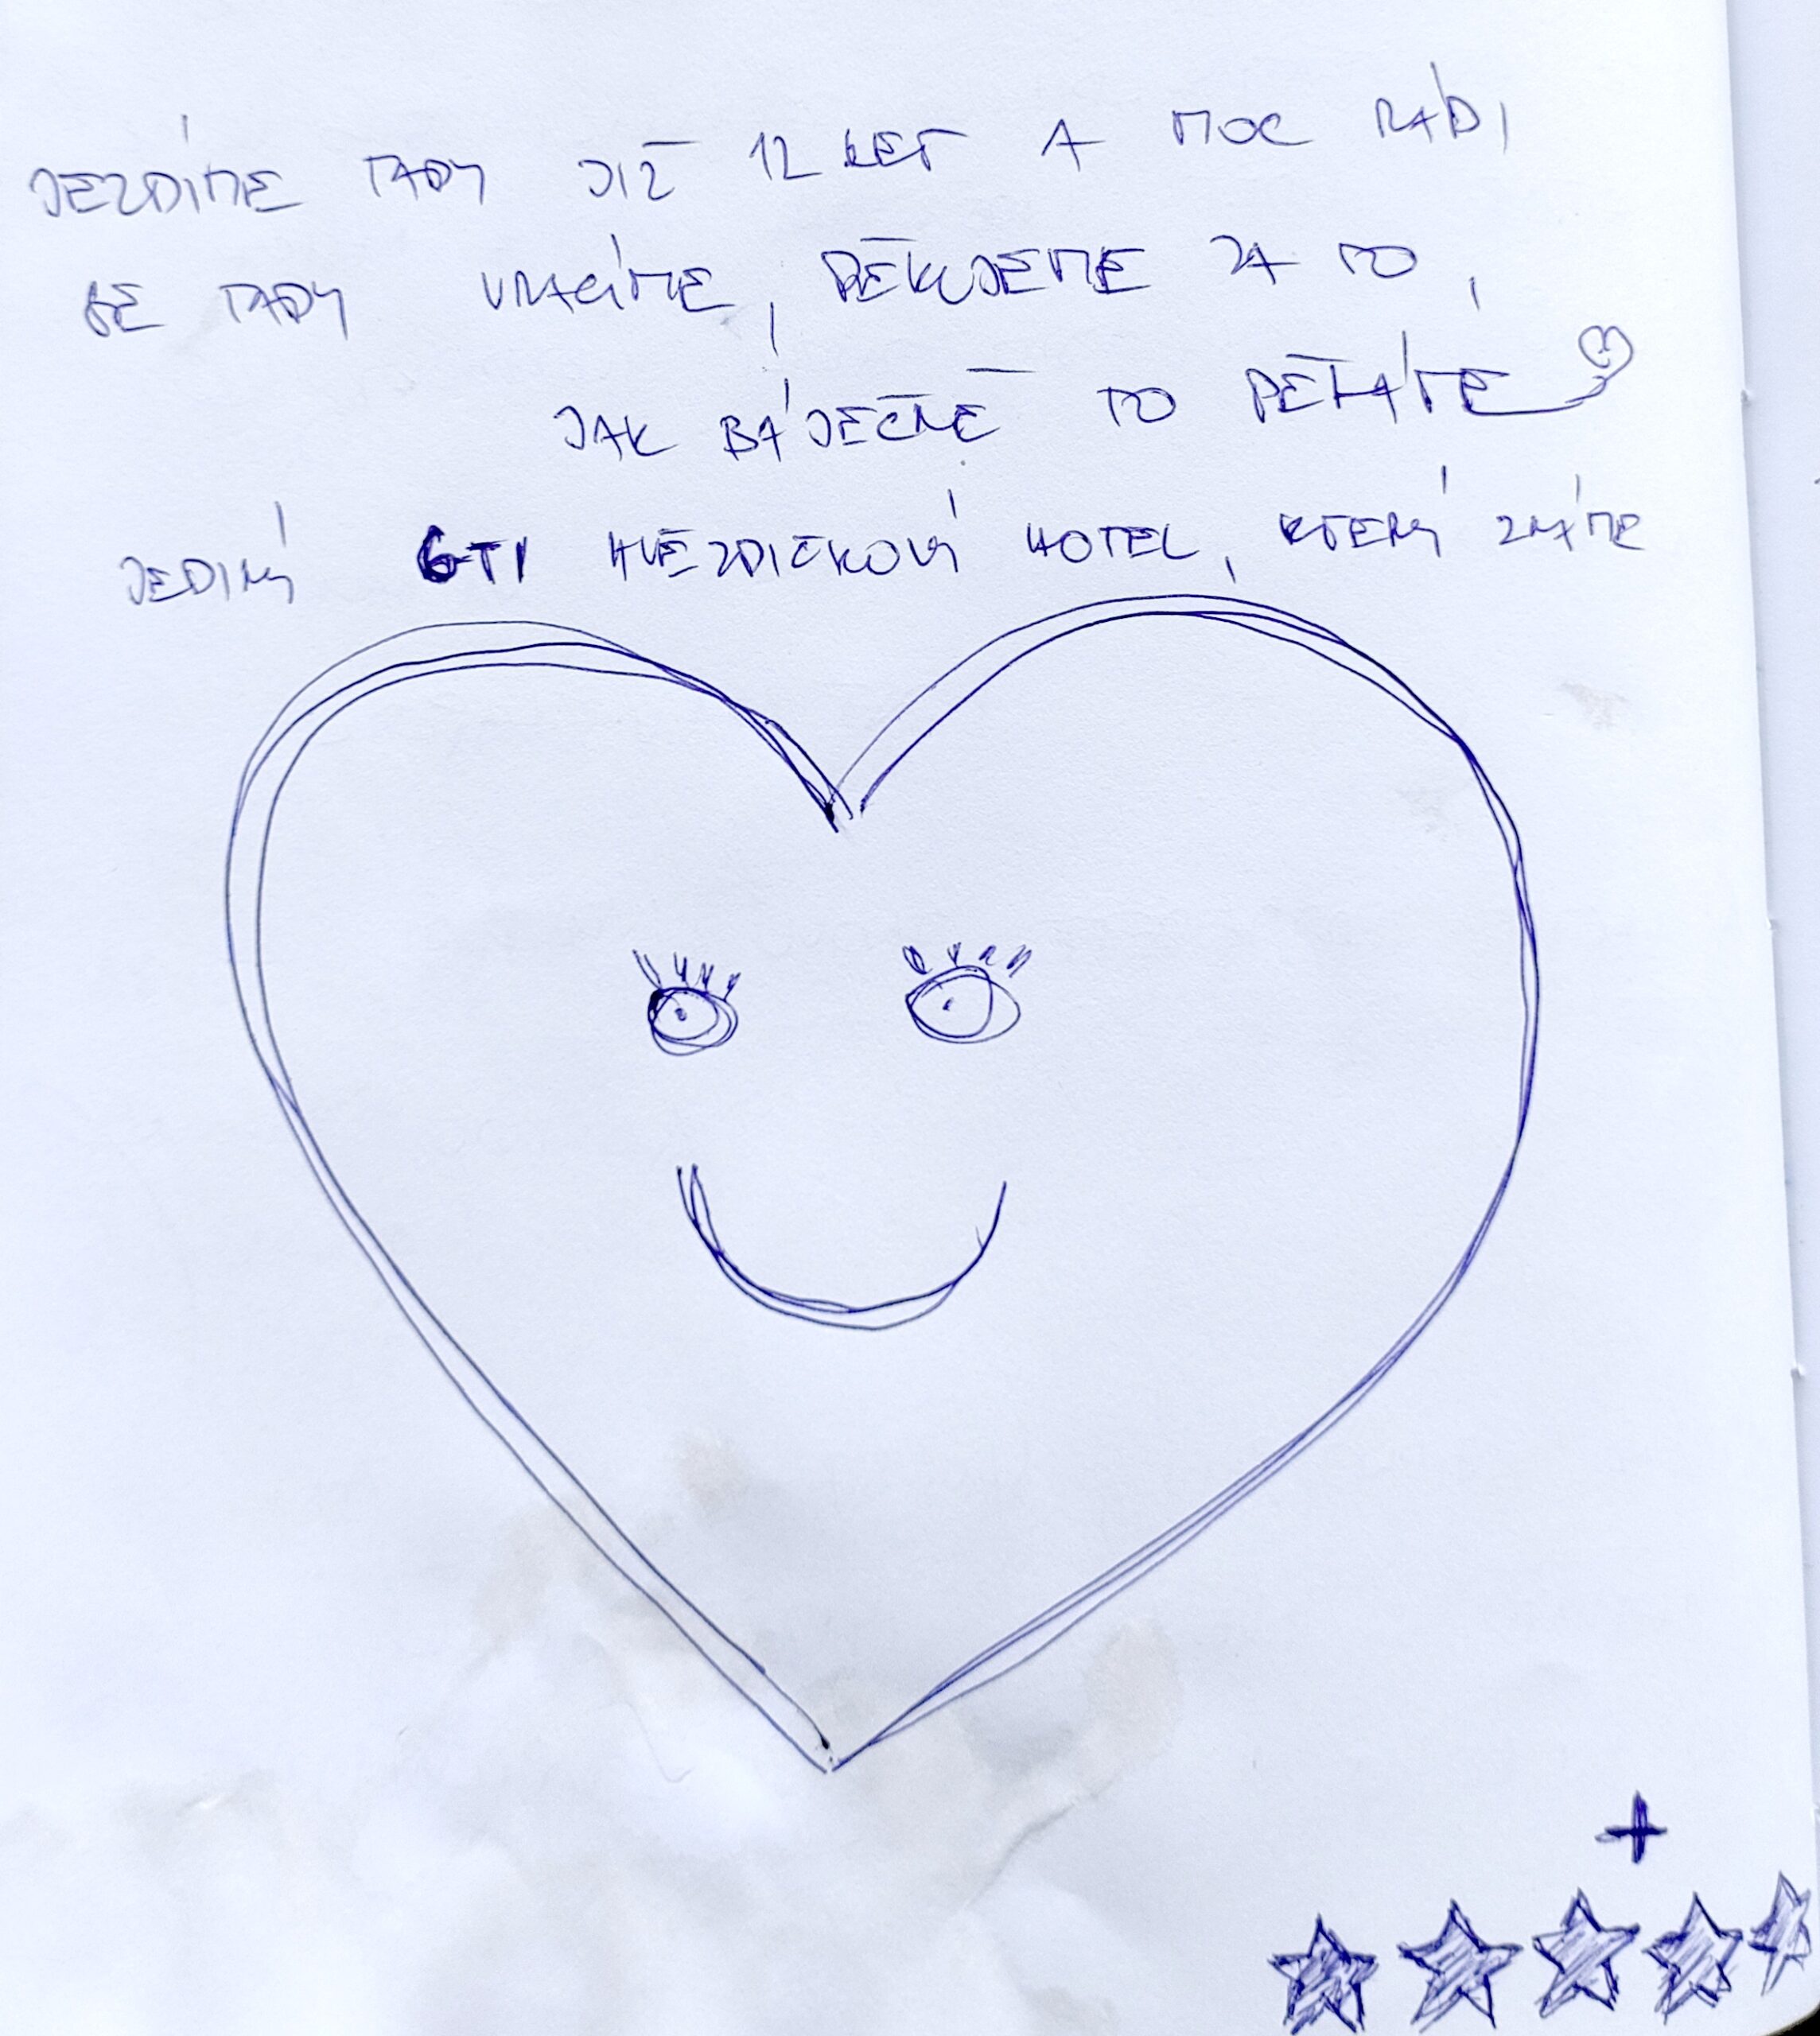 JEZDÍME TADY JIŽ 12 LET A MOC RÁDI
SE TADY VRACÍME, DĚKUJEME ZA TO,
JAK BÁJEČNĚ TO DĚLÁTE
JEDINÝ 6TI HVĚZDIČKOVÝ HOTEL, KTERÝ ZNÁME
+